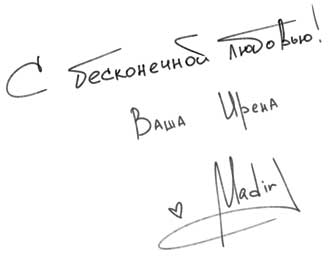 С бесконечной любовью!
Ваша Ирена
♡ Madir